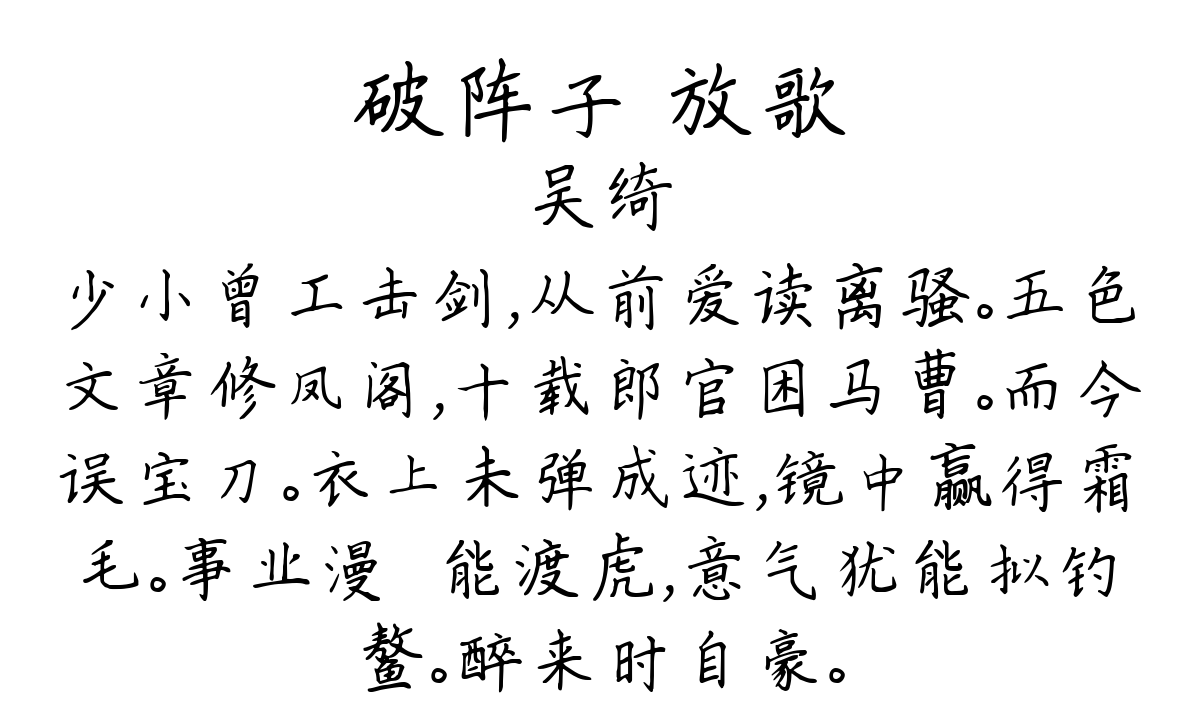 破阵子 放歌
吴绮
少小曾工击剑,从前爱读离骚。五色
文章修凤阁,十载郎官困马曹。而今
误宝刀。衣上未弹成迹,镜中赢得霜
毛。事业漫 能渡虎,意气犹能拟钓
鳌。醉来时自豪。